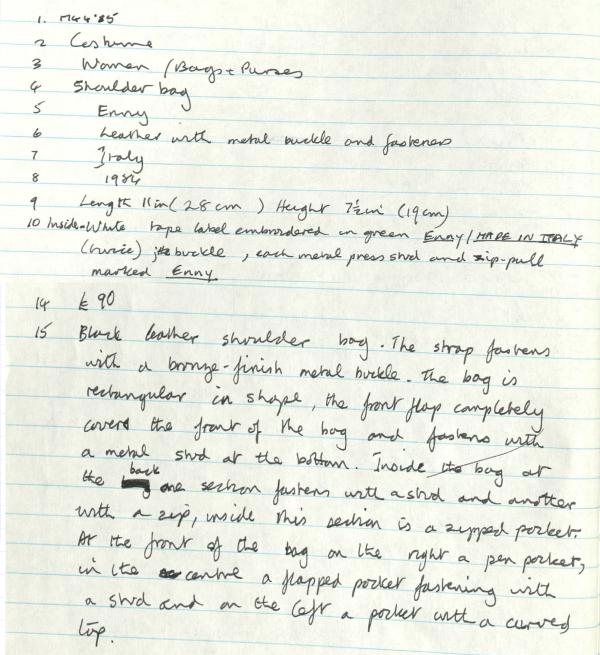 1. M44'85
2 Costume
3 Women / Bags + Purses
4 Shoulder bag
5 Enny
6 Leather with metal buckle and fasteners
7 Italy
8 1984
9 Length 11in (28cm) Height 7½in (19cm)
10 Inside-White tape label embroidered in green ENNY / MADE IN ITALY
(twice) buckle, each metal press stud and zip-pull
marked Enny.
14 £90
15 Black leather shoulder bag. The strap fastens
with a bronze-finish metal buckle. The bag is
rectangular in shape, the front flap completely
covers the front of the bag and fastens with
a metal stud at the bottom. Inside the bag at
the back one section fastens with a stud and another
with a zip, inside this section is a zipped pocket.
At the front of the bag on the right a pen pocket,
in the centre a flapped pocket fastening with
a stud and on the left a pocket with a curved
top.